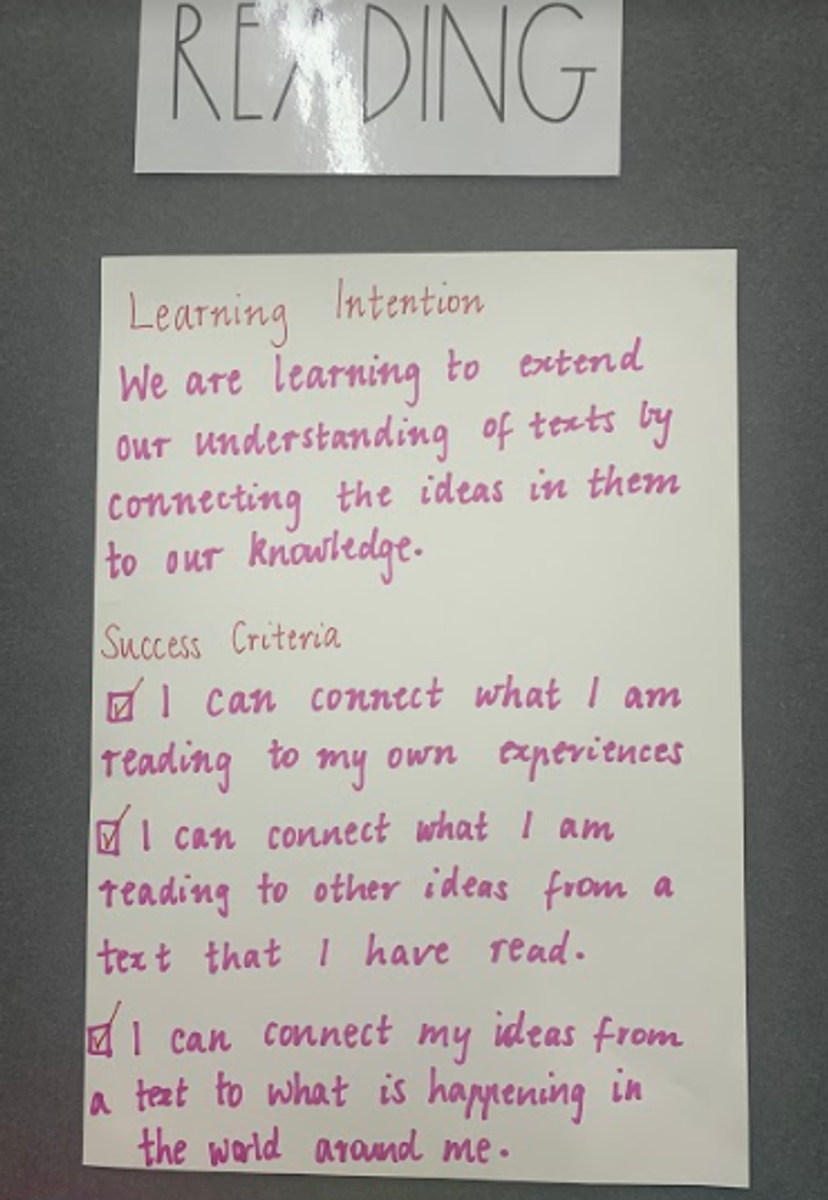 READING
Learning Intention
We are learning to extend
our understanding of texts by
connecting the ideas in them
to our knowledge.
Success Criteria
☑ I can connect what I am
reading to my own experiences
☑ I can connect what I am
reading to other ideas from a
text that I have read.
☑ I can connect my ideas from
a text to what is happening in
the world around me.